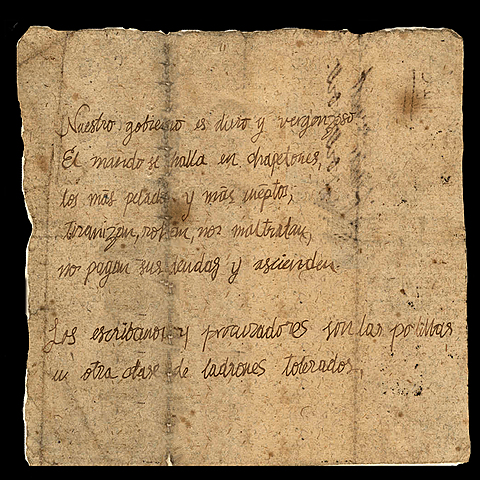 Nuestro gobierno es duro y vergonzoso
El mando se halla en chapetones,
los más pelados y más ineptos,
tiranizan, roban, nos maltratan,
no pagan sus deudas y ascienden.
Los escribanos y procuradores son las polillas
ni otra clase de ladrones tolerados.